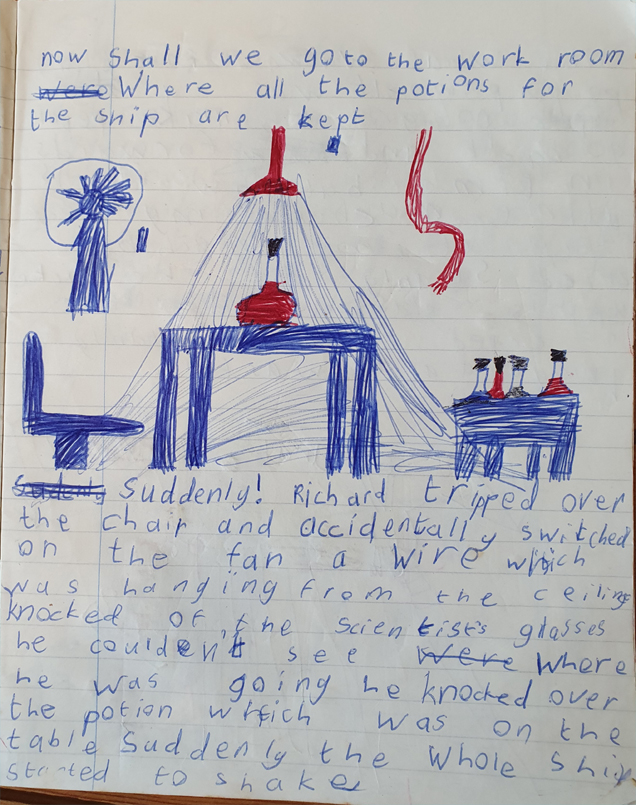 now shall we go to the work room
were Where all the potions for
the ship are kept
Suddenly Suddenly! Richard tripped over
the chair and accidentally switched
on the fan a wire which
was hanging from the ceiling
knocked of the scientist's glasses
he couldent see were where
he was going he knocked over
the potion which was on the
table suddenly the whole ship
started to shake